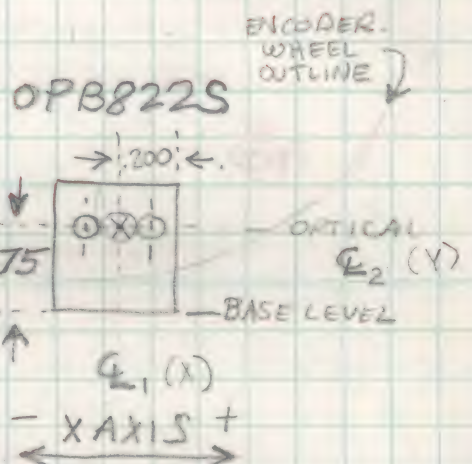 ENCODER
WHEEL
OUTLINE
OPB822S
.200
OPTICAL
75
℄2 (Y)
BASE LEVEL
℄1 (X)
- X AXIS +